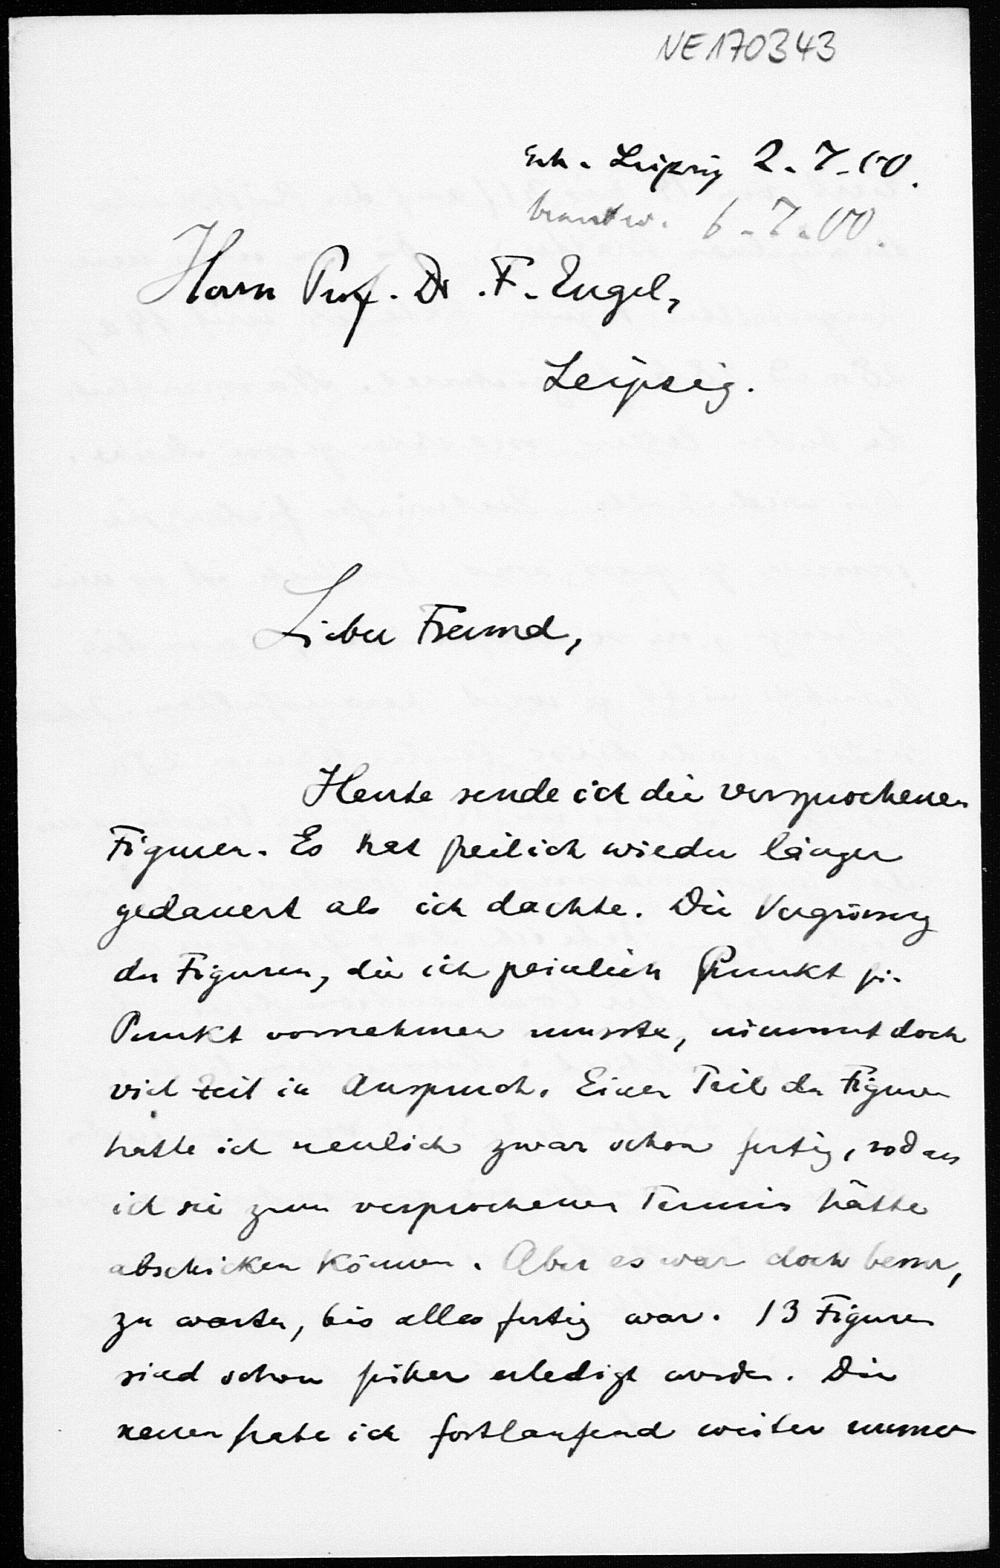 NE170343
Erh. Leipzig 2.7.00.
beantw. 6.7.00.
Herrn Prof. Dr. F. Engel,
Leipzig.
Lieber Freund,
Heute sende ich die versprochenen
Figuren. Es hat freilich wieder länger
gedauert als ich dachte. Die Vergrösserung
der Figuren, die ich peinlich Punkt für
Punkt vornehmen musste, nimmt doch
viel Zeit in Anspruch. Einen Teil der Figuren
hatte ich neulich zwar schon fertig, sodass
ich sie zum versprochenen Termin hätte
abschicken können. Aber es war doch besser,
zu warten, bis alles fertig war. 13 Figuren
sind schon früher erledigt worden. Die
neuen habe ich fortlaufend weiter numer